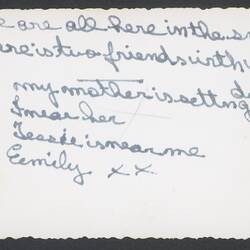 e are all here in the s
ere is two friends with
my mother is setting d
I near her
Jessie is near me
Eemily x x